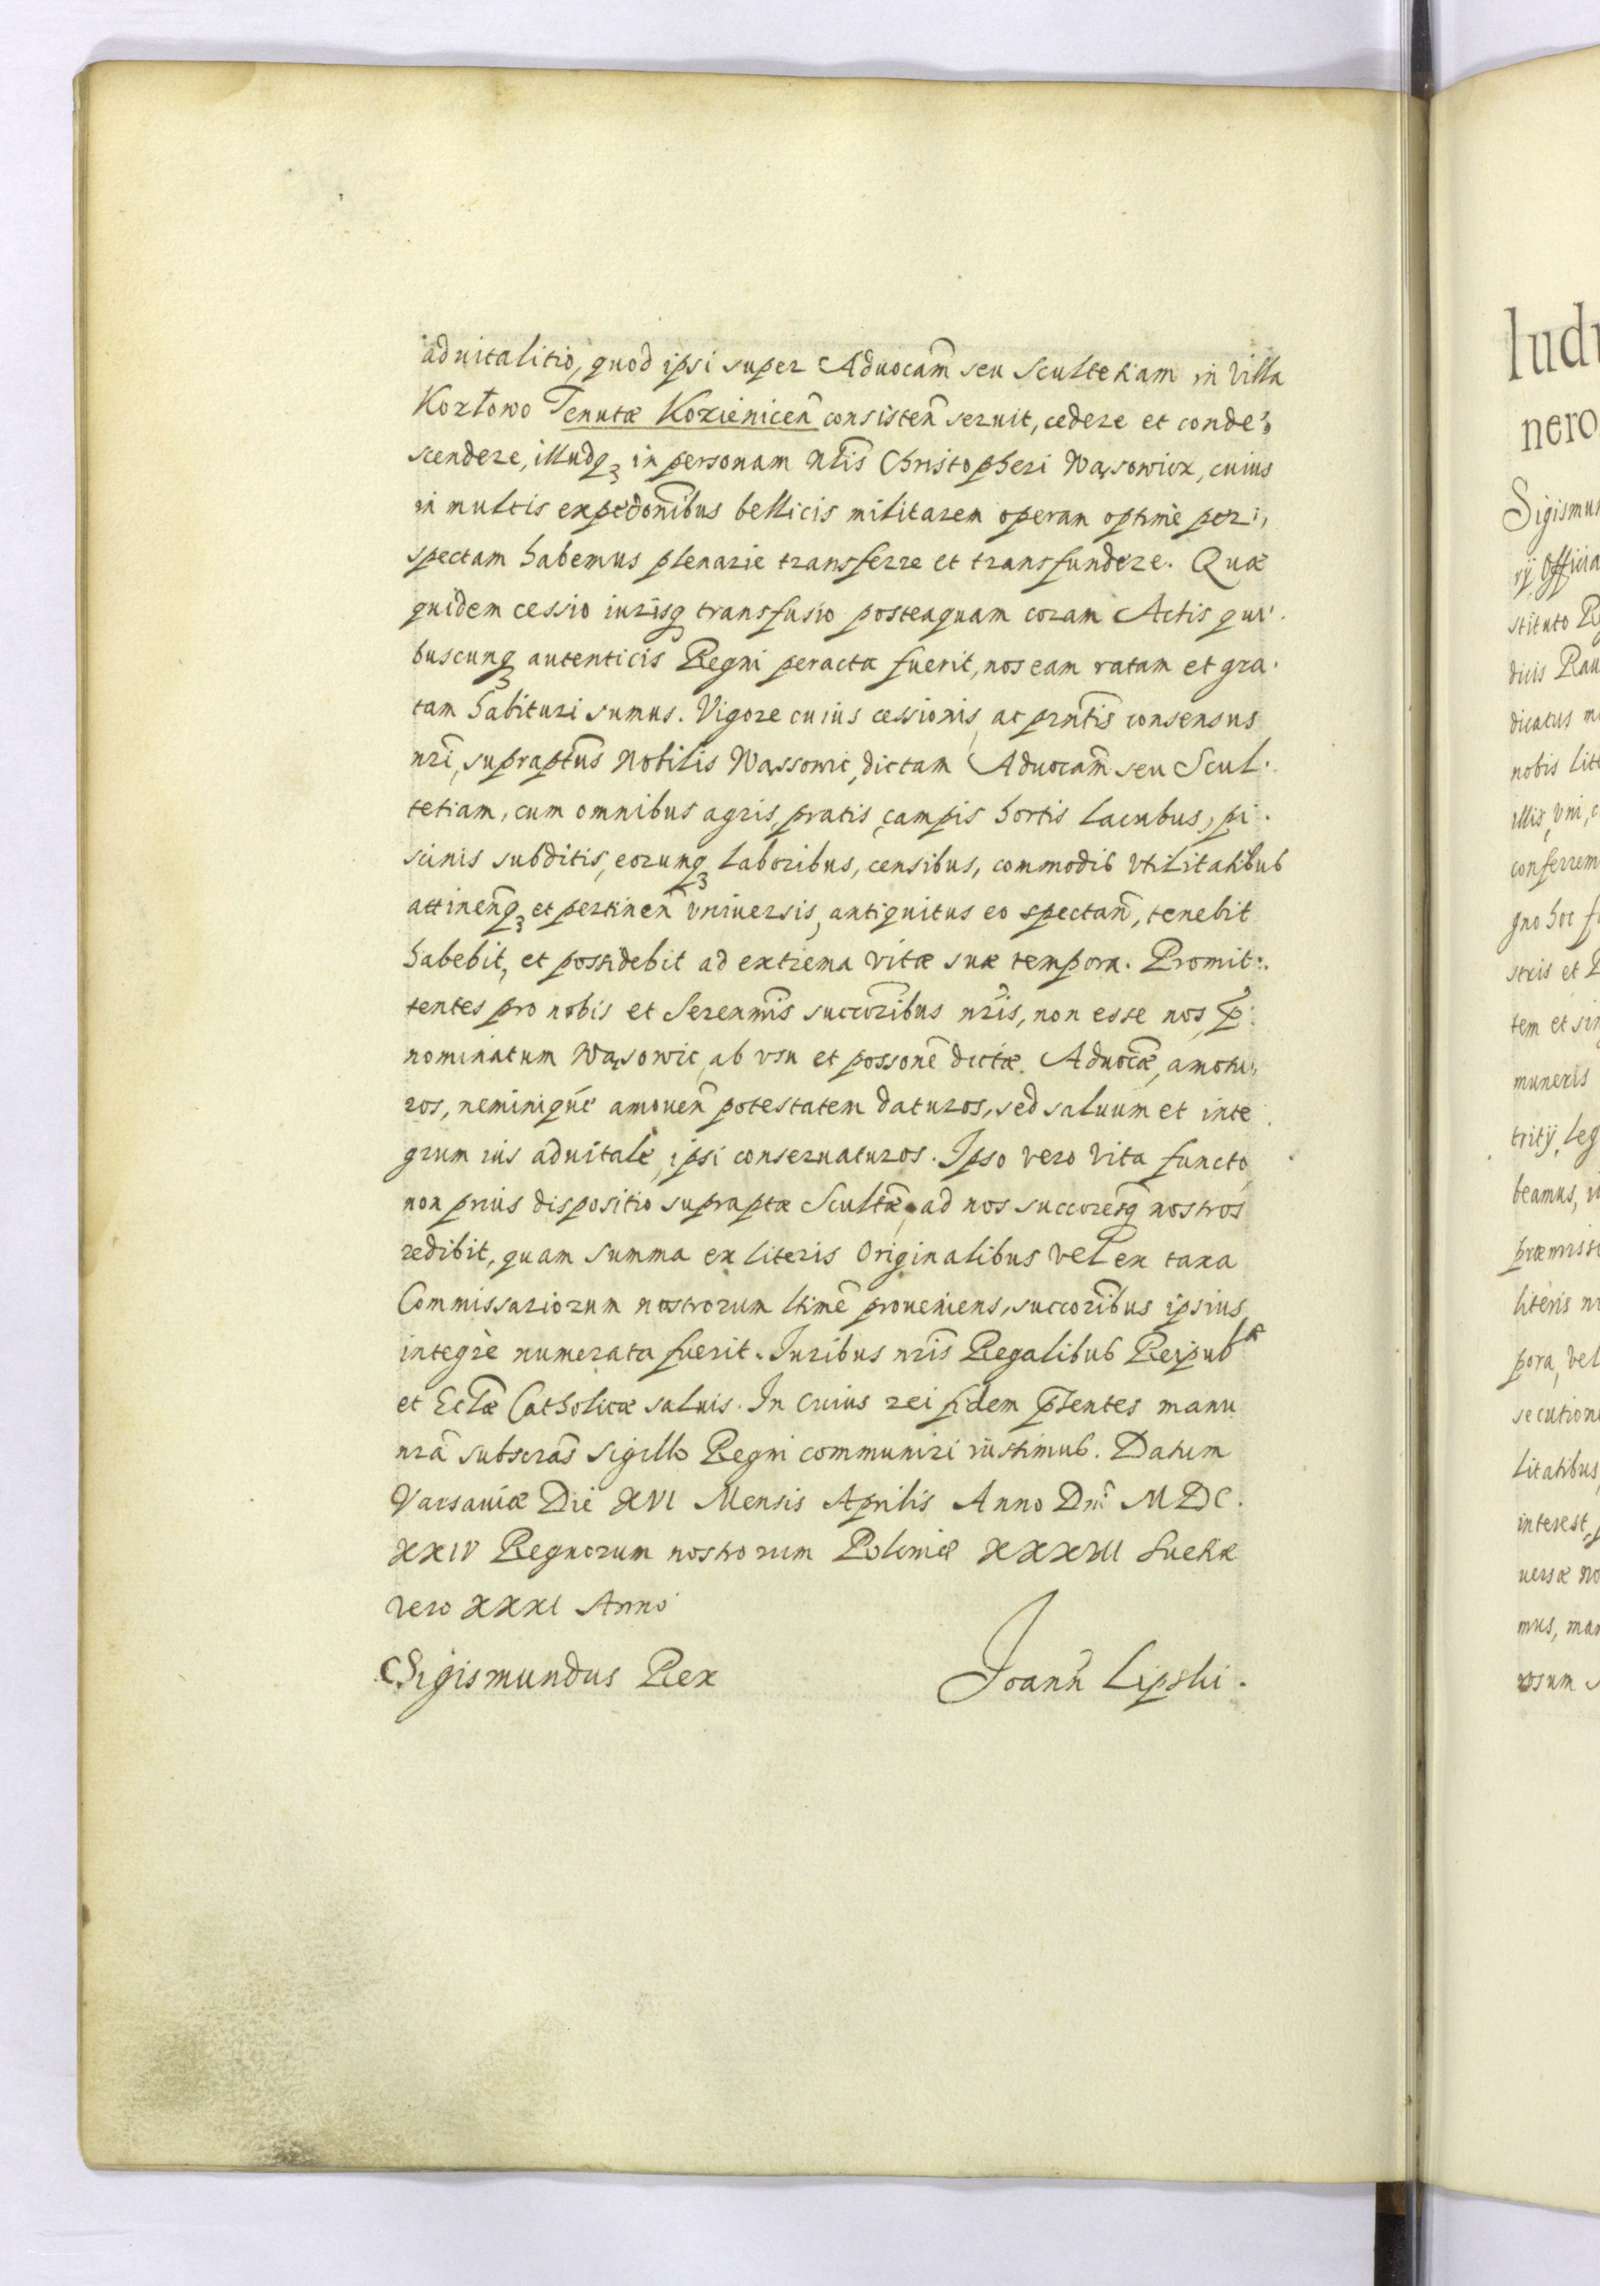 aduitalitio, quod ipsi super Aduocam̃ seu Scultetiam in Villa
Kozłowo Tenutæ Kozienicen̄ consisten̄ seruit, cedere et conde¬
scendere, illudq₃ in personam Nĩis Christopheri Wąsowicz, cuius
in multis expedõnibus bellicis militarem operam optimè per¬
spectam habemus plenarie transferre et transfundere. Quæ
quidem cessio iurisq₃ transfusio posteaquam coram Actis qui¬
buscunq₃ autenticis Regni peracta fuerit, nos eam ratam et gra¬
tam habituri sumus. Vigore cuius cessionis, ac prñtis consensus
nr̃i, supraptũs Nobilis Wąssowic, dictam Aduocam̃ seu Scul¬
tetiam, cum omnibus agris, pratis, campis hortis lacubus, pi¬
scinis subditis, eorunq₃ laboribus, censibus, commodis vtilitatibus
attinen̄q₃ et pertinen̄ vniuersis, antiquitus eo spectan̄, tenebit
habebit, et possidebit ad extrema vitæ suæ tempora. Promit¬
tentes pro nobis et Serenm̃is succõribus nr̃is, non esse nos, p̃
nominatum Wąsowic, ab vsu et possonẽ dictæ Aduocæ̃, amotu¬
ros, neminiqúe amouen̄ potestatem daturos, sed saluum et inte
grum ius aduitale, ipsi conseruaturos. Ipso vero vita functo,
non prius dispositio supraptæ Scultæ̃, ad nos succoresq̃ nostros
redibit, quam summa ex literis Originalibus vel ex taxa
Commissariorum nostrorum ltimẽ proueniens, succorĩbus ipsius
integrè numerata fuerit. Iuribus nr̃is Regalibus Reipub^læ
et Eclæ̃ Catholicæ saluis. In cuius rei fidem p̃sentes manu
nrã subscrãs Sigillo Regni communiri iũstimus. Datum
Varsauiæ Die XVI Mensis Aprilis Anno Dni MDC.
XXIV Regnorum nostrorum Poloniæ XXXVII Sueciæ
vero XXXI Anno
Sigismundus Rex
Joann̄ Lipski.
nero
Sigismun
rij Officia
stituto
dicis
dicatus
nobis litt
illis, vni,
conferrem
gno hoc
stris et
tem et sin
muneris
tritij, leg
beamus,
præmissi
literis
pora, vel
secution
litatibus
interest,
uersæ
mus, man